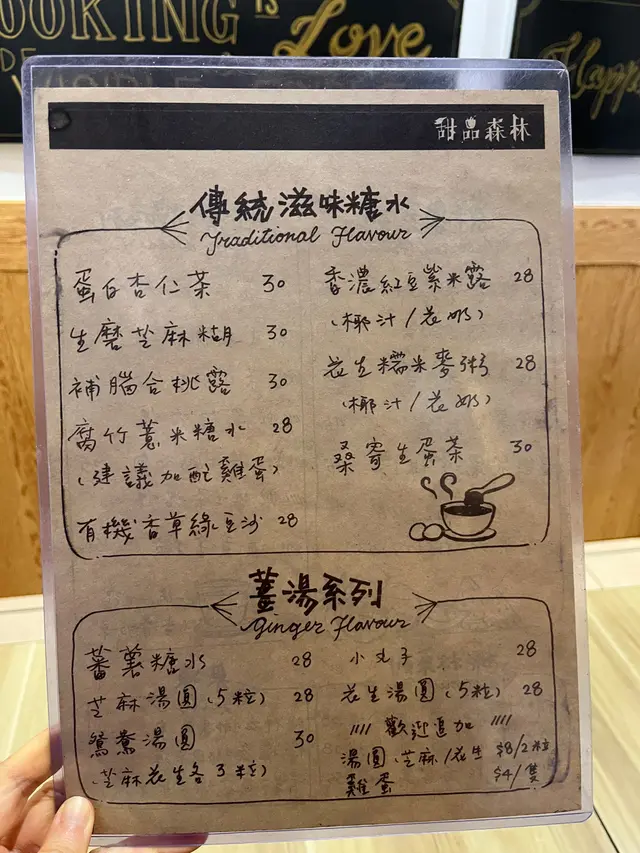 COOKING IS
Love
Happ
甜品森林
傳統滋味糖水
Traditional Flavour
蛋白杏仁茶 30
生磨芝麻糊 30
補腦合桃露 30
腐竹薏米糖水 28
(建議加配雞蛋)
有機香草綠豆沙 28
香濃紅豆紫米露 28
(椰汁/花奶)
花生糯米麥粥 28
(椰汁/花奶)
桑寄生蛋茶 30
薑湯系列
Ginger Flavour
蕃薯糖水 28
芝麻湯圓(5粒) 28
鴛鴦湯圓 30
(芝麻花生各3粒)
小丸子 28
花生湯圓(5粒) 28
"" 歡迎追加 ""
湯圓(芝麻/花生 $8/2粒
雞蛋 $4/隻